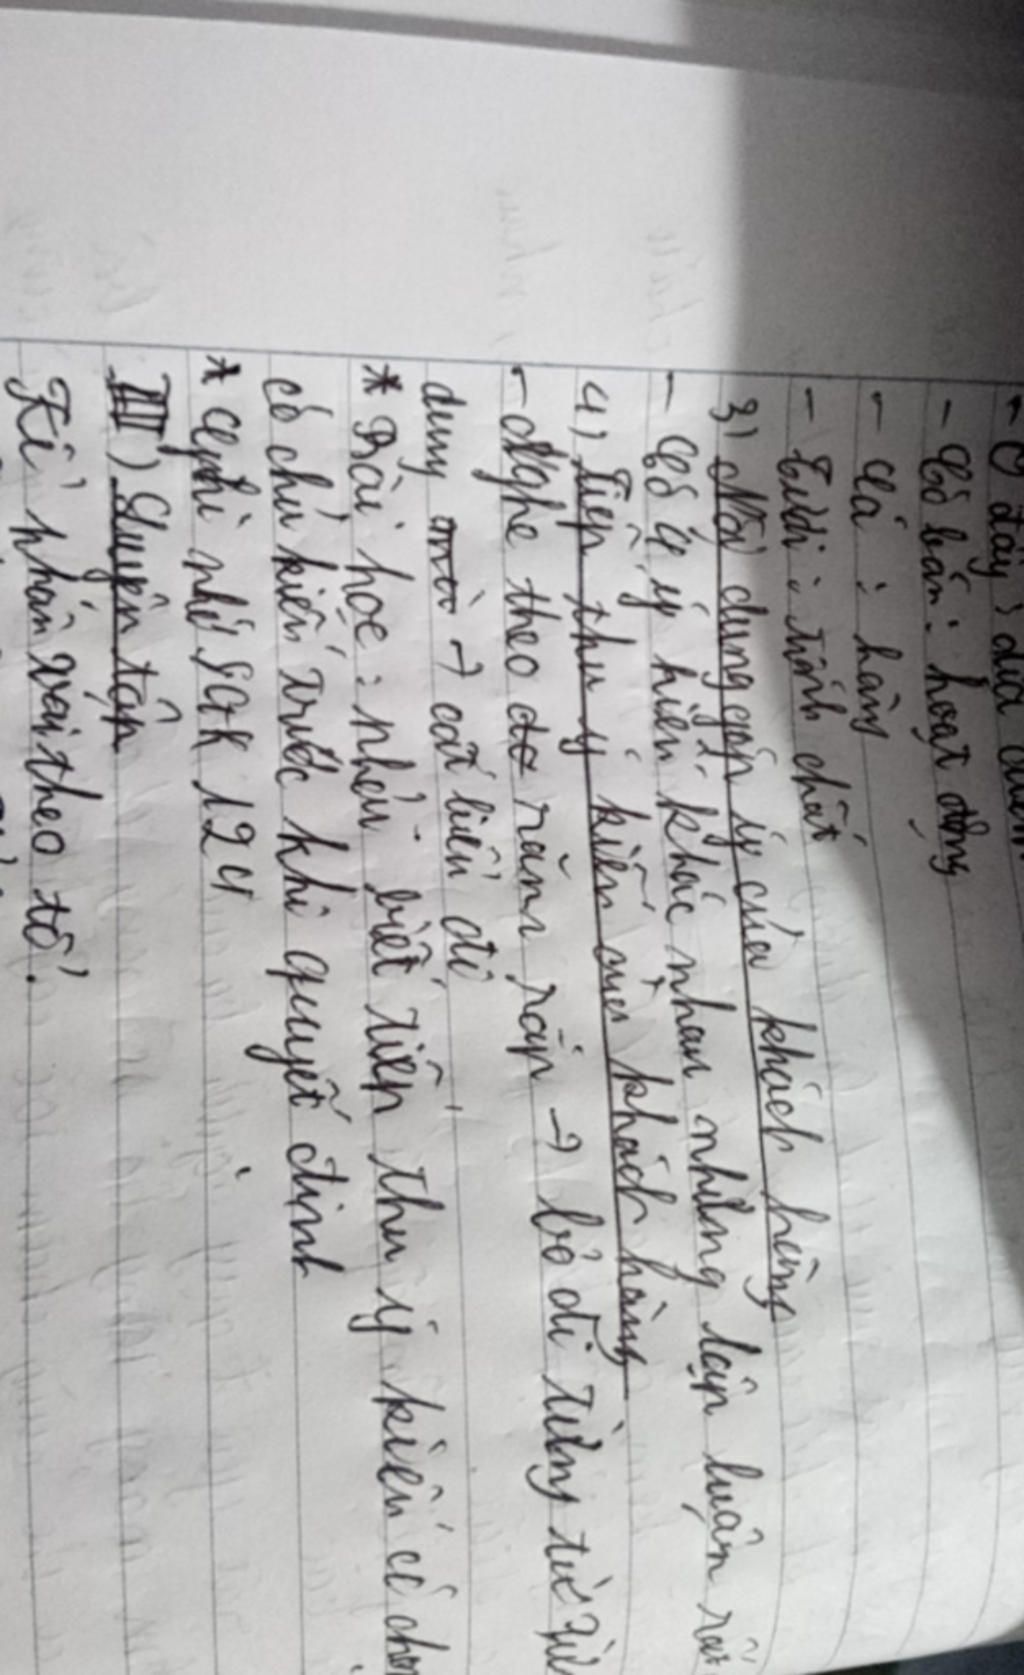 - Ở đây: địa điểm
- Có bán: hoạt động
- Cá: hàng
- Tươi: tính chất
3) Nội dung góp ý của khách hàng
- Có 4 ý kiến khác nhau nhưng lập luận rất
4) Tiếp thu ý kiến của khách hàng
- Nghe theo răm rắp → bỏ đi từng từ
dung → cất biển đi
* Bài học: phải biết tiếp thu ý kiến có chọn
có chủ kiến trước khi quyết định
* Ghi nhớ SGK 124
III) Luyện tập
Kể phân vai theo tổ.